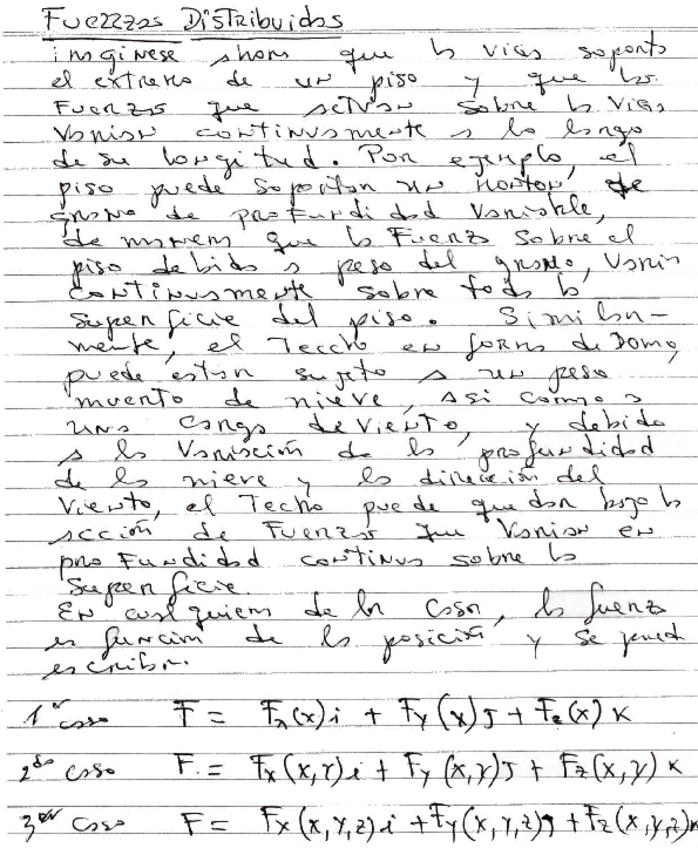 Fuerzas Distribuidas
imginese ahora que la viga soporta
el extremo de un piso y que las
Fuerzas que actuan sobre la viga
Varian continuamente a lo largo
de su longitud. Por ejemplo, el
piso puede soportar un monton de
grano de profundidad variable,
de manera que la Fuerza sobre el
piso debido a peso del grano, varia
continuamente sobre toda la
superficie del piso. Similar-
mente, el Teccho en forma de Domo,
puede estar sujeto a un peso
muerto de nieve, asi como a
una carga de viento, y debido
a la Variación de la profundidad
de la nieve y la dirección del
viento, el Techo puede quedar bajo la
acción de Fuerzas que Varian en
profundidad continua sobre la
superficie.
En cualquiera de los casos, la fuerza
es función de la posición y se puede
escribir.
1er caso F = Fx(x)i + Fy(x)J + Fz(x)K
2do caso F = Fx(x,y)i + Fy(x,y)J + Fz(x,y)K
3er caso F = Fx(x,y,z)i + Fy(x,y,z)J + Fz(x,y,z)K